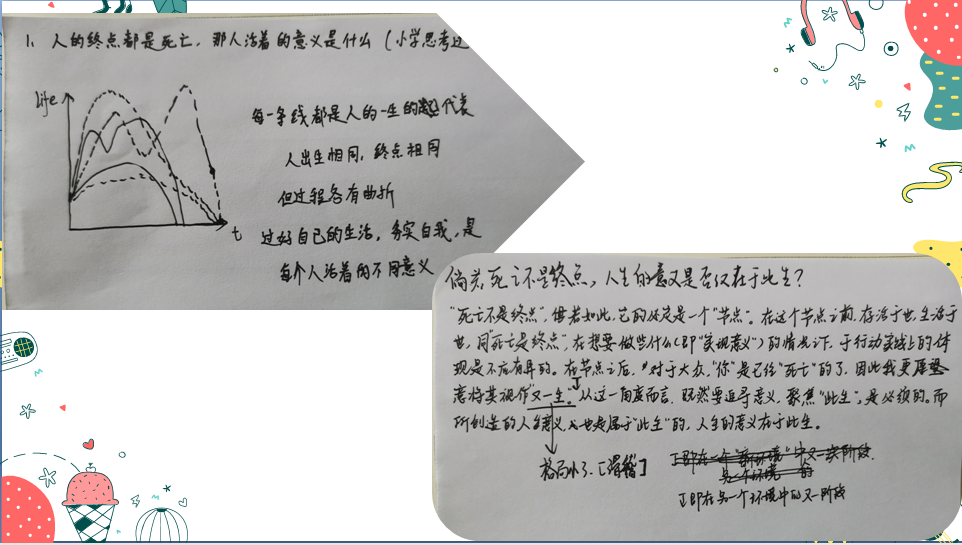 1. 人的终点都是死亡，那人活着的意义是什么（小学思考过
life
每一条线都是人的一生的代表
人出生相同，终点相同
但过程各有曲折
t
过好自己的生活，务实自我，是
每个人活着的不同意义
倘若死亡不是终点，人生的意义是否仅在于此生？
"死亡不是终点"，倘若如此，它的好歹是一个"节点"。在这个节点之前，存活于世，生活于
世，同"死亡是终点"，在想要做些什么（即"实现意义"）的情况下，于行动实践上的体
现是不应有异的。在节点之后，对于大众，"你"是已经"死亡"的了，因此我更愿
意将其视作"又一生"。从这一角度而言，既然要追寻意义，聚焦"此生"，是必须的。而
所创造的人生意义，也是属于"此生"的，人生的意义在于此生。
格局小了.[滑稽]
即在另一个环境中的又一阶段